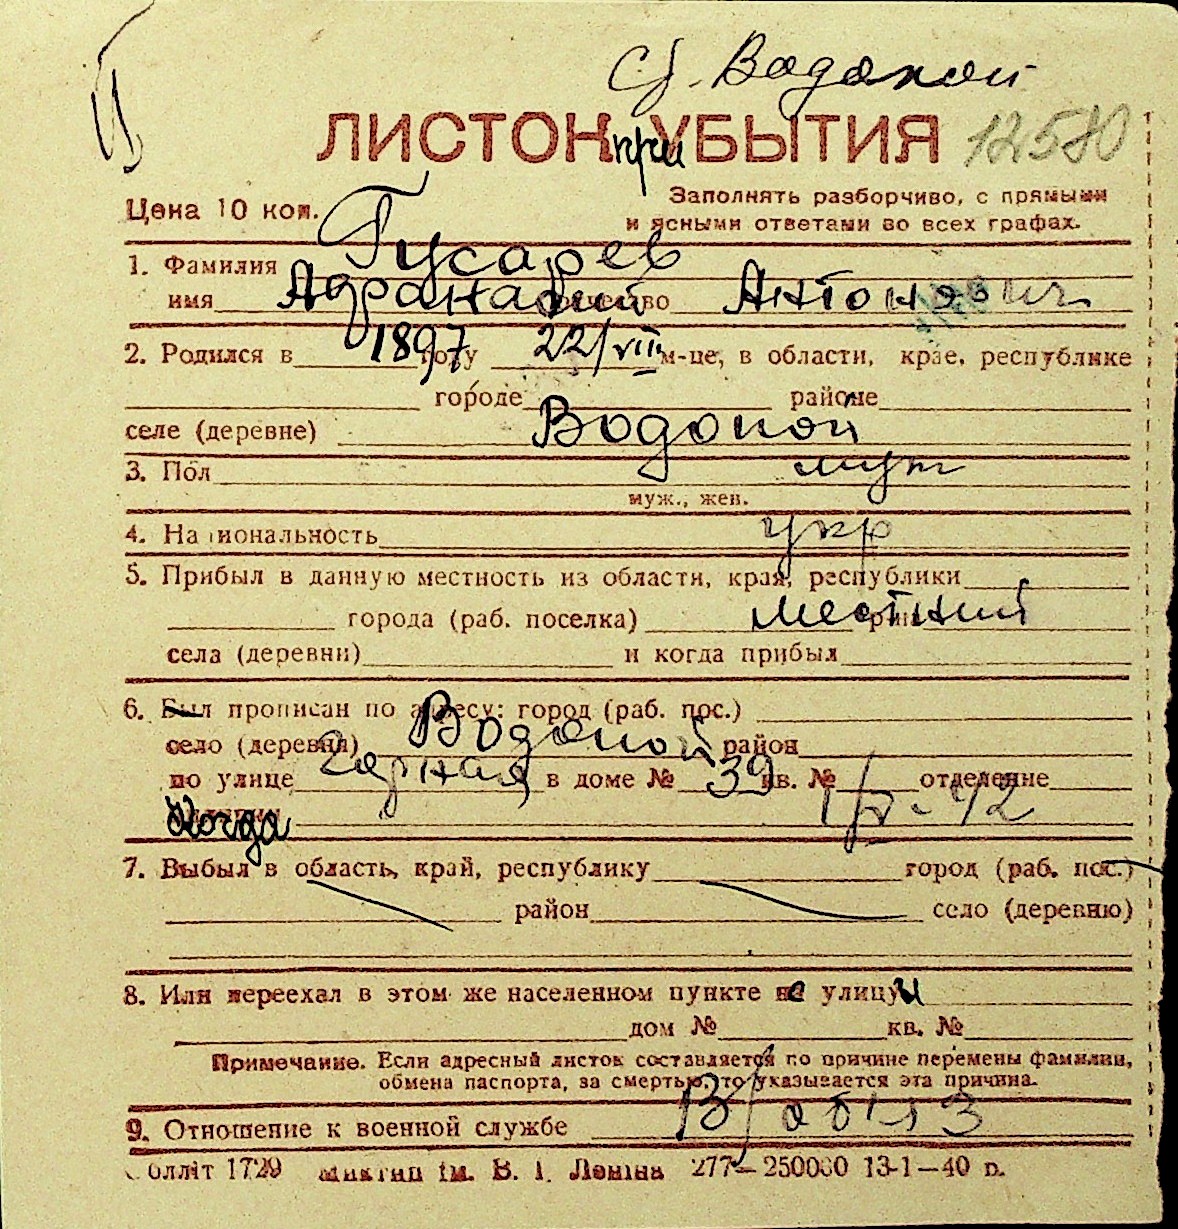 Сл. Водопой
ЛИСТОК при УБЫТИЯ 12580
Цена 10 коп. Заполнять разборчиво, с прямыми
и ясными ответами во всех графах.
1. Фамилия Гусарев
имя отчество Антонович
2. Родился в 1897 году 22/VIII м-це, в области, крае, республике
городе районе
селе (деревне) Водопой
3. Пол муж
муж., жен.
4. Национальность укр
5. Прибыл в данную местность из области, края, республики
города (раб. поселка) местний
села (деревни) и когда прибыл
6. Был прописан по адресу: город (раб. пос.)
село (деревня) Водопой район
по улице Горная в доме № 39 кв. № отделение
Когда 1/V-42
7. Выбыл в область, край, республику город (раб. пос.)
район село (деревню)
8. Или переехал в этом же населенном пункте не улицы
дом № кв. №
Примечание. Если адресный листок составляется по причине перемены фамилии,
обмена паспорта, за смертью, то указывается эта причина.
9. Отношение к военной службе В/обяз
Облліт 1729 ім. В. І. Леніна 277—250000 13-1—40 р.